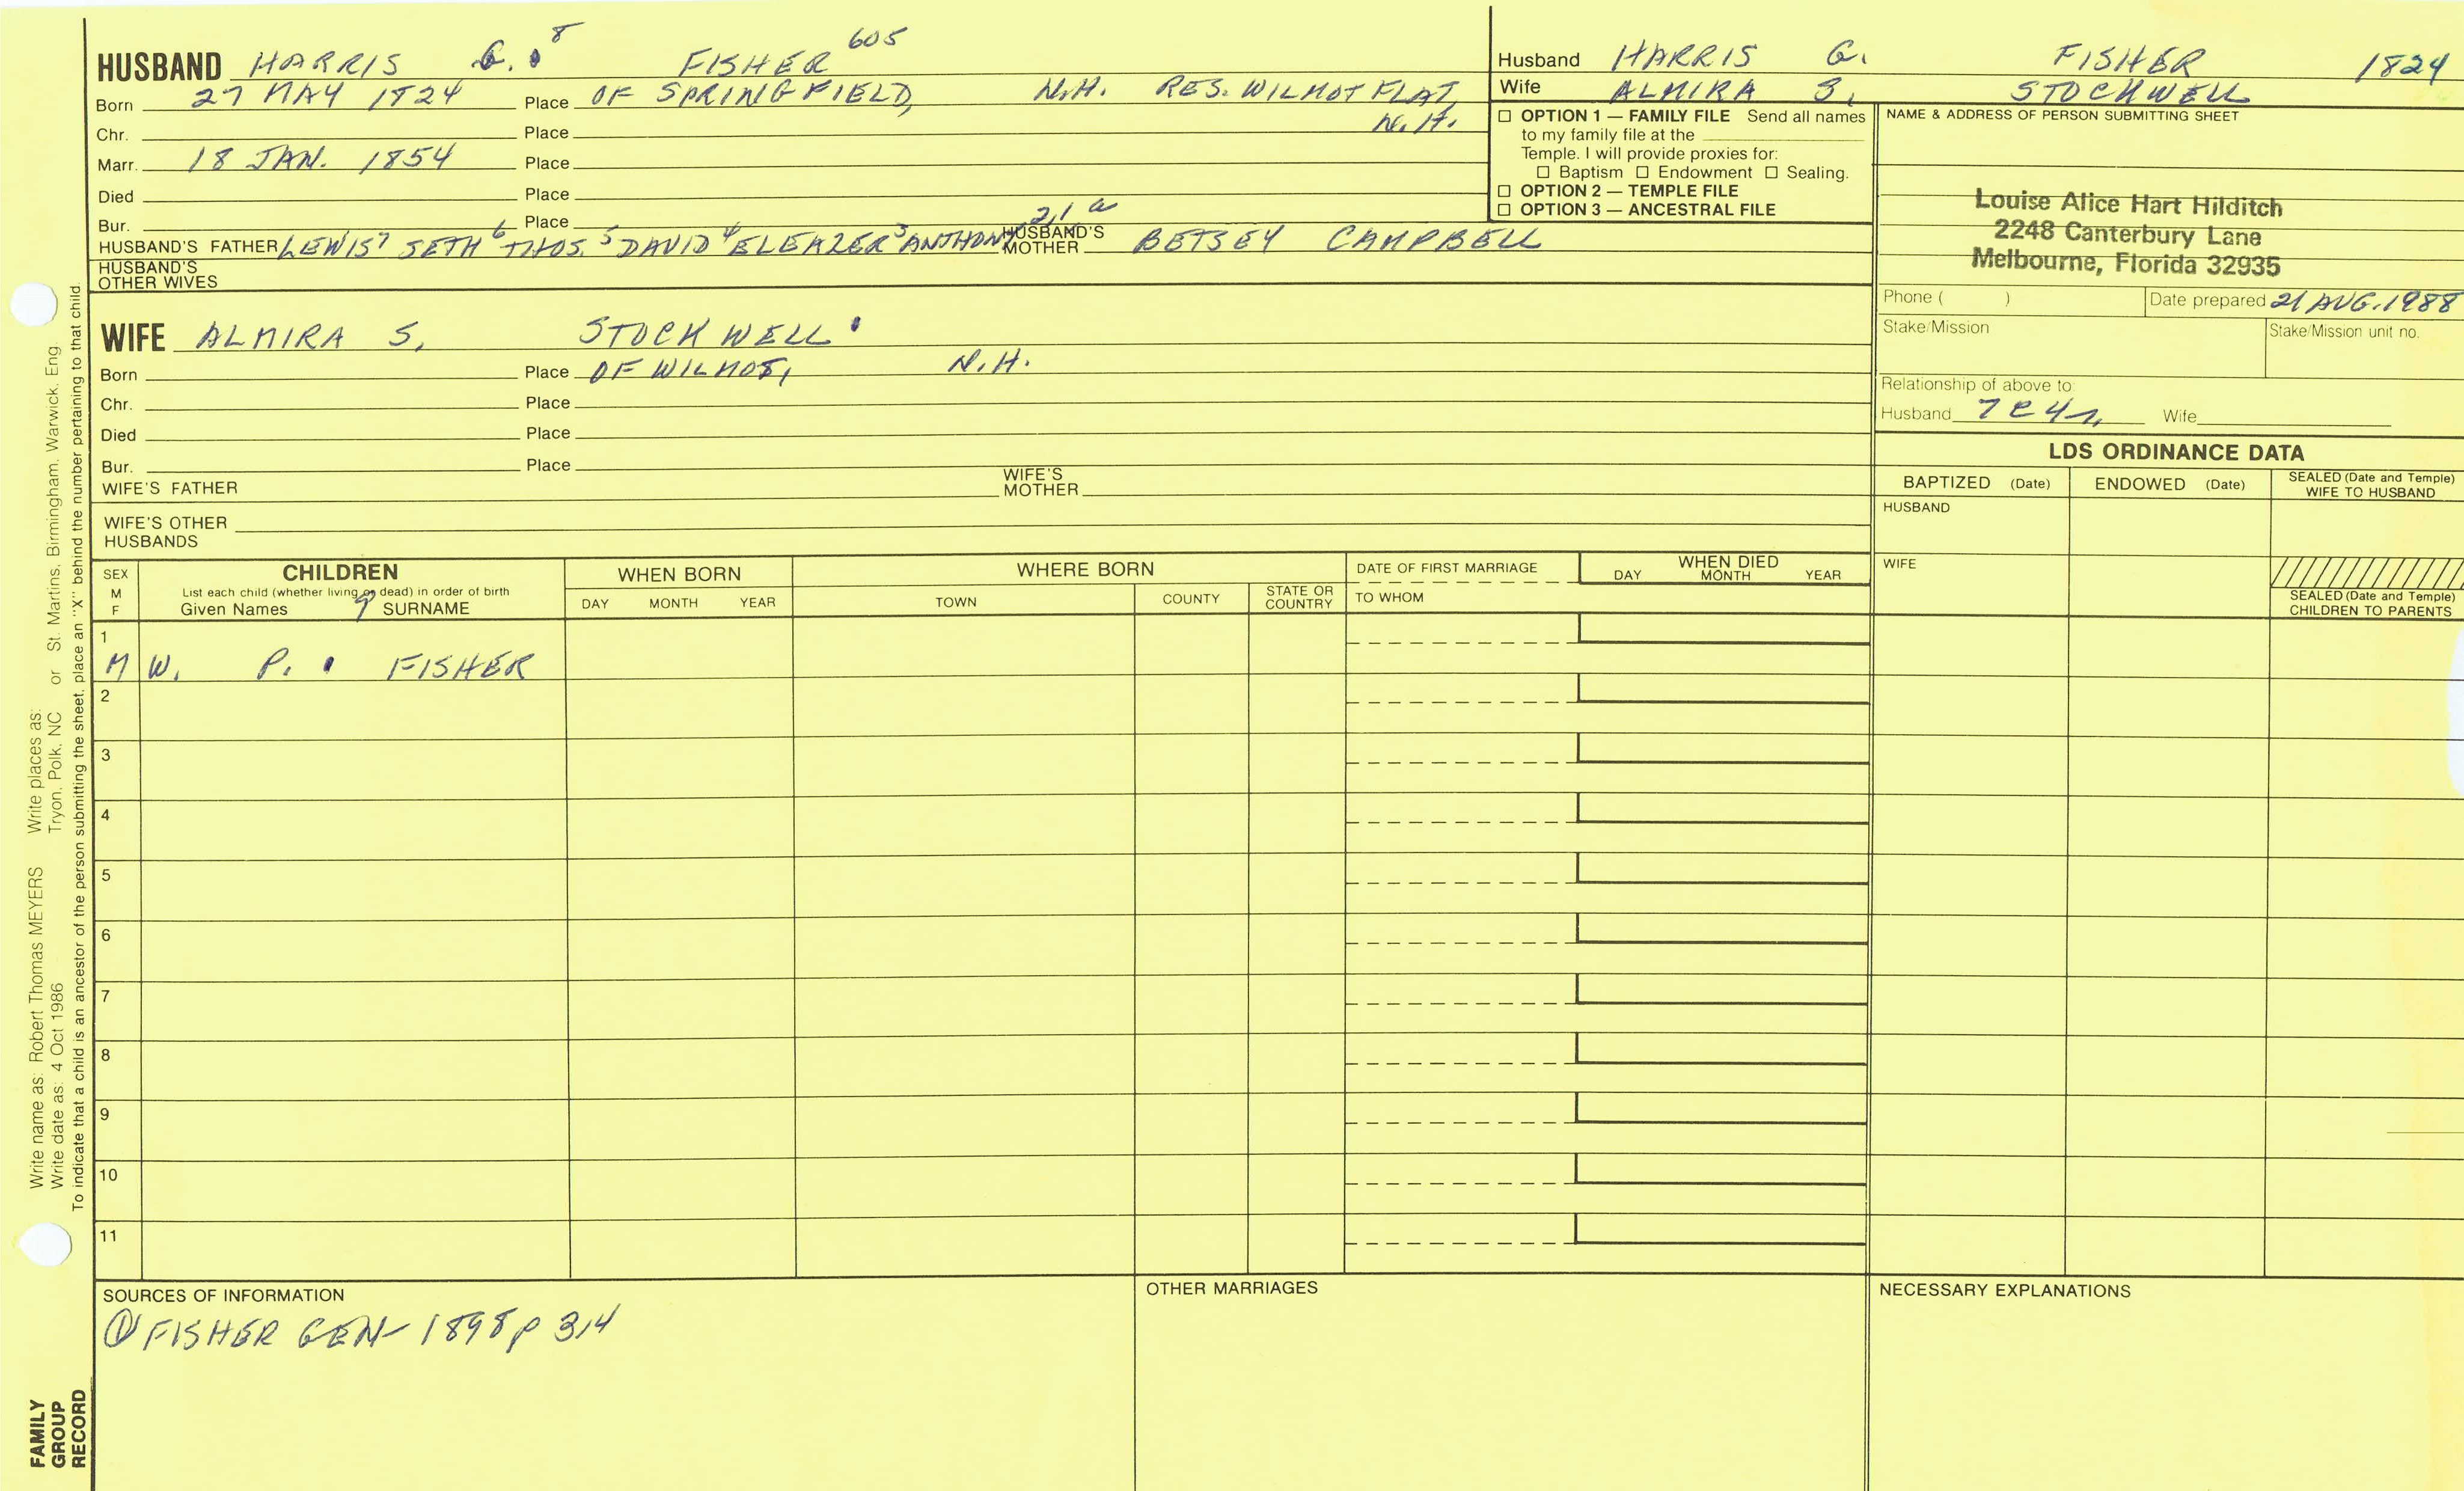 HUSBAND HARRIS G. 8 FISHER 605
Born 27 MAY 1824 Place OF SPRINGFIELD, N.H. RES. WILMOT FLAT, N.H.
Chr. Place
Marr. 18 JAN. 1854 Place
Died Place
Bur. Place
HUSBAND'S FATHER LEWIS 7 SETH 6 THOS. 5 DAVID 4 ELEAZER 3 ANTHONY 2,1 a HUSBAND'S MOTHER BETSEY CAMPBELL
HUSBAND'S OTHER WIVES
WIFE ALMIRA S. STOCKWELL
Born Place OF WILMOT, N.H.
Chr. Place
Died Place
Bur. Place
WIFE'S FATHER WIFE'S MOTHER
WIFE'S OTHER HUSBANDS
Husband HARRIS G. FISHER 1824
Wife ALMIRA S. STOCKWELL
☐ OPTION 1 — FAMILY FILE Send all names
to my family file at the
Temple. I will provide proxies for:
☐ Baptism ☐ Endowment ☐ Sealing.
☐ OPTION 2 — TEMPLE FILE
☐ OPTION 3 — ANCESTRAL FILE
NAME & ADDRESS OF PERSON SUBMITTING SHEET
Louise Alice Hart Hilditch
2248 Canterbury Lane
Melbourne, Florida 32935
Phone ( ) Date prepared 21 AUG. 1988
Stake/Mission Stake/Mission unit no.
Relationship of above to:
Husband 7C4R Wife
LDS ORDINANCE DATA
BAPTIZED (Date) ENDOWED (Date) SEALED (Date and Temple) WIFE TO HUSBAND
HUSBAND
WIFE
SEALED (Date and Temple) CHILDREN TO PARENTS
SEX M F
CHILDREN
List each child (whether living or dead) in order of birth
Given Names 9 SURNAME
WHEN BORN
DAY MONTH YEAR
WHERE BORN
TOWN COUNTY STATE OR COUNTRY
DATE OF FIRST MARRIAGE
TO WHOM
WHEN DIED
DAY MONTH YEAR
1
M W. P. FISHER
2
3
4
5
6
7
8
9
10
11
SOURCES OF INFORMATION
① FISHER GEN- 1898 p 314
OTHER MARRIAGES
NECESSARY EXPLANATIONS
Write name as: Robert Thomas MEYERS Write places as:
Write date as: 4 Oct 1986 Tryon, Polk, NC or St. Martins, Birmingham, Warwick, Eng.
To indicate that a child is an ancestor of the person submitting the sheet, place an "X" behind the number pertaining to that child.
FAMILY
GROUP
RECORD